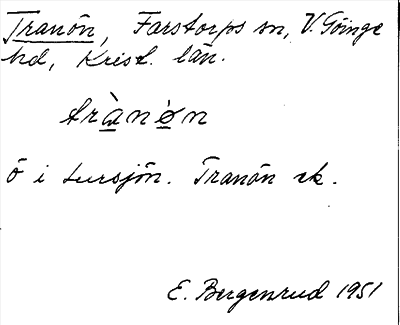 Tranön, Farstorps sn, V. Göinge
hd, Krist. län.
trànø̀n
ö i Lursjön. Tranön ek.
E. Bergenrud 1951